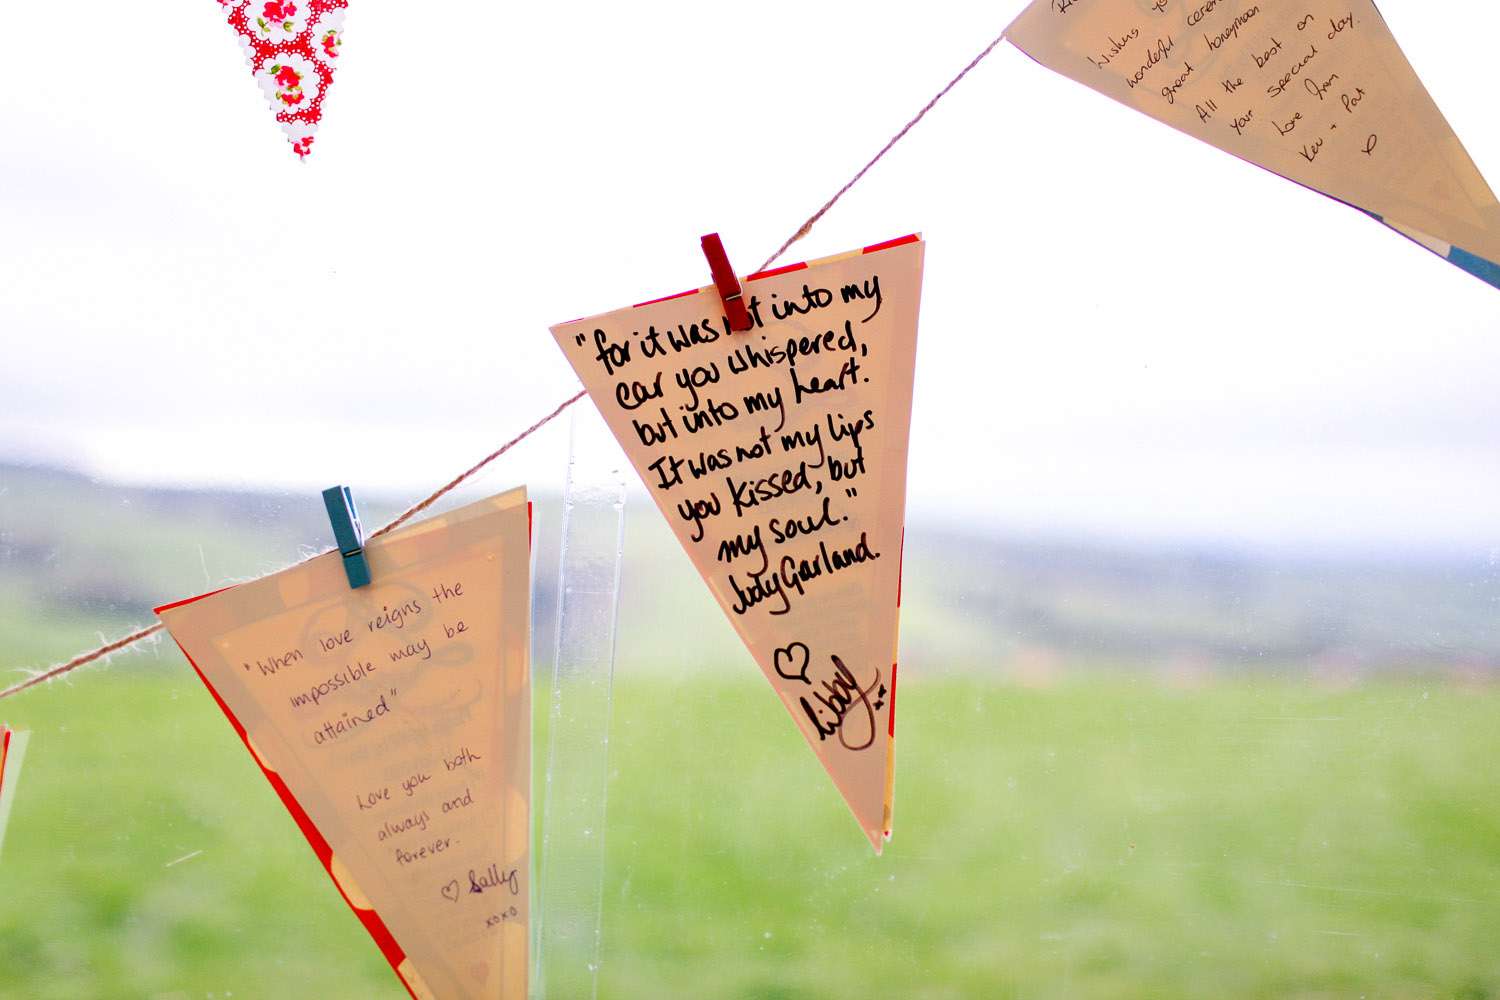 "When love reigns the
impossible may be
attained"
Love you both
always and
forever.
♡ Sally
xoxo
"for it was not into my
ear you whispered,
but into my heart.
It was not my lips
you kissed, but
my soul."
Judy Garland.
♡
libby
xx
Wishes
wonderful
great honeymoon
All the best on
your special day.
Love from
Kev + Pat